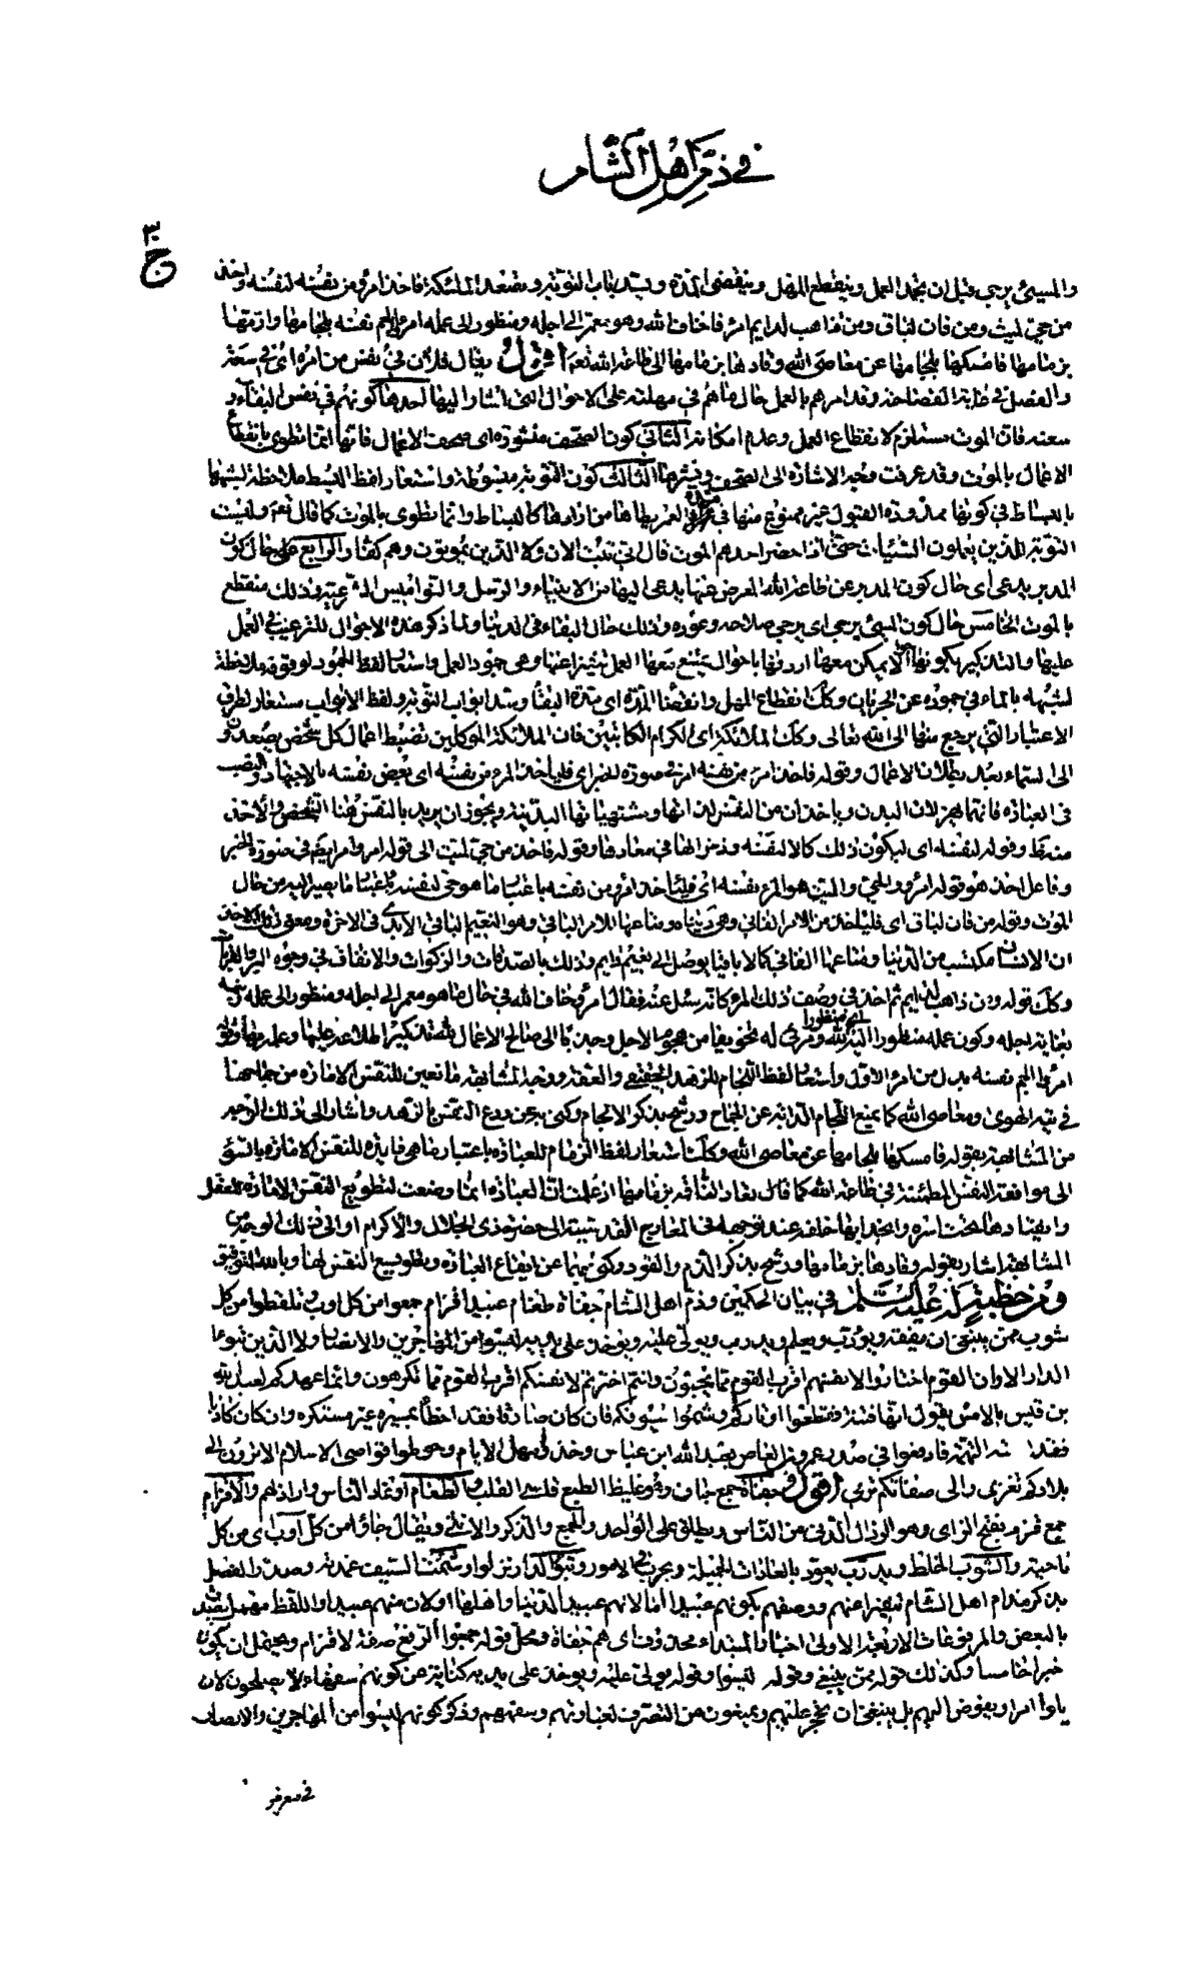 في ذم اهل الشام
ج ٣
والمسيئ يرجى قبل ان يخمد العمل وينقطع المهل وينقضى المدة ويسد باب التوبة وتصعد الملئكة فاخذ امرؤ من نفسه لنفسه واخذ
من حى لميت ومن فان لباق ومن ذاهب لدايم امرؤ خاف الله وهو معمر الى اجله ومنظور الى عمله امرؤ الجم نفسه بلجامها وازمتها
بزمامها فامسكها بلجامها عن معاصى الله وقادها بزمامها الى طاعة الله تعم اقول يقال فلان في نفس من امره اى في سعة
والفصل في غاية الفصاحة وقد امرهم بالعمل حال ماهم في مهلته على الاحوال التى اشار اليها احدها كونهم في نفس البقاء و
سعته فان الموت مستلزم لانقطاع العمل وعدم امكانه الثانى كون الصحف منشورة اى صحف الاعمال فانها انما تطوى بانقطاع
الاعمال بالموت وقد عرفت وجه الاشارة الى الصحف ونشرها الثالث كون التوبة مبسوطة واستعار لفظ البسط ملاحظة لشبهها
بالبساط في كونها ممدودة القبول غير ممنوع منها في مدة العمر يطاها من ارادها كالبساط وانما تطوى بالموت كما قال تعم وليست
التوبة للذين يعملون السيئات حتى اذا حضر احدهم الموت قال انى تبت الان ولا الذين يموتون وهم كفار الرابع حال كون
المدبر يدعى اى حال كون المدبر عن طاعة الله المعرض عنها يدعى اليها من الانبياء والرسل والنواميس الشرعية وذلك منقطع
بالموت الخامس حال كون المسيئ يرجى اى يرجى صلاحه وعوده وذلك حال البقاء في الدنيا ولما ذكر هذه الاحوال للترغيب في العمل
عليها والتذكير بكونها لا يمكن معها اردفها باحوال يمتنع معها العمل تنفيرا عنها وهى جمود العمل واستعار لفظ الجمود لوقوفه ملاحظة
لشبهه بالماء في جموده عن الجريان وكك انقطاع المهل وانقضاء المدة اى مدة البقاء وسد ابواب التوبة ولفظ الابواب مستعار لطرق
الاعتبار التى يرجع منها الى الله تعالى وكك الملائكة اى الكرام الكاتبين فان الملائكة الموكلين بضبط اعمال كل شخص يصعدون
الى السماء بعد بطلان الاعمال وقوله فاخذ امرؤ من نفسه امر في صورة الخبر اى فلياخذ المرء من نفسه اى بعض نفسه بالاجتهاد والنصب
في العبادة فانها هزلان البدن وياخذان من النفس لذاتها ومشتهياتها البدنية ويجوز ان يريد بالنفس هنا الشخص والاخذ
منه وقوله لنفسه اى ليكون ذلك كمالا لنفسه وذخرا لها في معادها وقوله فاخذ من حى لميت الى قوله امر في صورة الخبر
وفاعل اخذ هو قوله امرؤ والحى والميت هو المرء نفسه اى فلياخذ امرؤ من نفسه باعتبار ما هو حى لنفسه باعتبار ما يصير اليه من حال
الموت وقوله من فان لباق اى فلياخذ من الامر الفانى وهو دنياه ومتاعها للامر الباقى وهو النعيم الباقى الابدى في الاخرة ومعنى ذلك الاخذ
ان الانسان مكتسب من الدنيا ومتاعها الفانى كمالا باقيا يوصل الى نعيم دايم وذلك بالصدقات والزكوات والانفاق في وجوه البر والقربات
وكك قوله ومن ذاهب لدايم ثم اخذ في وصف ذلك المرء كانه سئل عنه فقال امرؤ خاف الله في حال ما هو معمر الى اجله ومنظور الى عمله ونبه
بغاية اجله وكون عمله منظورا اليه لله ومرئى له تخويفا من هجوم الاجل وجذبا الى صالح الاعمال
امرؤ الجم نفسه بدل من امرؤ الاول واستعار لفظ اللجام للزهد الحقيقى والعفة ووجه المشابهة مانعين للنفس الامارة من جماحها
في تيه الهوى ومعاصى الله كما يمنع اللجام الدابة عن الجماح ورشح بذكر الالجام وكنى به عن ردع النفس بالزهد واشار الى ذلك الوجه
من المشابهة بقوله فامسكها بلجامها عن معاصى الله وكك استعار لفظ الزمام للعبادة باعتبار ماهى قايدة للنفس الامارة بالسوء
الى موافقة النفس المطمئنة في طاعة الله كما قال تقاد الناقة بزمامها اذ علمت ان العبادة انما وضعت لتطويع النفس الامارة للعقل
وانقيادها تحت اسره وانجذابها خلفه عند توجهه في المعارج القدسية الى حضرة ذى الجلال والاكرام والى ذلك الوجه من
المشابهة اشار بقوله وقادها بزمامها ورشح بذكر الزم والقود وكنى بهما عن ايقاع العبادة وتطويع النفس لها وبالله التوفيق
ومن خطبة له عليه السلام في بيان الحكمين وذم اهل الشام جفاة طغام عبيد اقزام جمعوا من كل اوب وتلقطوا من كل
شوب ممن ينبغى ان يفقه ويؤدب ويعلم ويدرب ويولى عليه ويؤخذ على يديه ليسوا من المهاجرين والانصار ولا الذين تبوءا
الدار الا وان القوم اختاروا لانفسهم اقرب القوم مما يحبون وانتم اخترتم لانفسكم اقرب القوم مما تكرهون وانما عهدكم بعبد الله
بن قيس بالامس يقول انها فتنة فقطعوا اوتاركم وشيموا سيوفكم فان كان صادقا فقد اخطأ بمسيره غير مستكره وان كان كاذبا
فقد التهمة فادفعوا في صدر عمرو بن العاص بعبد الله ابن عباس وخذوا مهل الايام وحوطوا قواصى الاسلام الا ترون الى
بلادكم تغزى والى صفاتكم ترمى اقول جفاة جمع جاف وهو غليظ الطبع قاسى القلب والطغام اوغاد الناس واراذلهم والاقزام
جمع قزم بفتح الزاى وهو الرذال الدنى من الناس ويطلق على الواحد والجمع والذكر والانثى ويقال جاؤا من كل اوب اى من كل
ناحية والشوب الخلط ويدرب يعود بالعادات الجميلة ويجرب في الامور وتبوأ الدار نزلوا وشمت السيف غمدته وصدر الفصل
بذكر مذام اهل الشام تنفيرا عنهم ووصفهم بكونهم عبيدا اما لانهم عبيد الدنيا واهلها او لان منهم عبيدا واللفظ مهمل يصدق
بالبعض والمرفوعات الاربعة الاولى اخبار المبتداء محذوف اى هم جفاة ومحل قوله جمعوا الرفع صفة لاقزام ويحتمل ان يكون
خبرا خامسا وكذلك قوله ممن ينبغى وقوله ليسوا وقوله يولى عليه ويؤخذ على يديه كناية عن كونهم سفهاء لا يصلحون لان
يلوا امرا ويفوض اليهم بل ينبغى ان يحجر عليهم ويمنعون من التصرف لغباوتهم وسفههم وذكر كونهم ليسوا من المهاجرين والانصار
في معرض